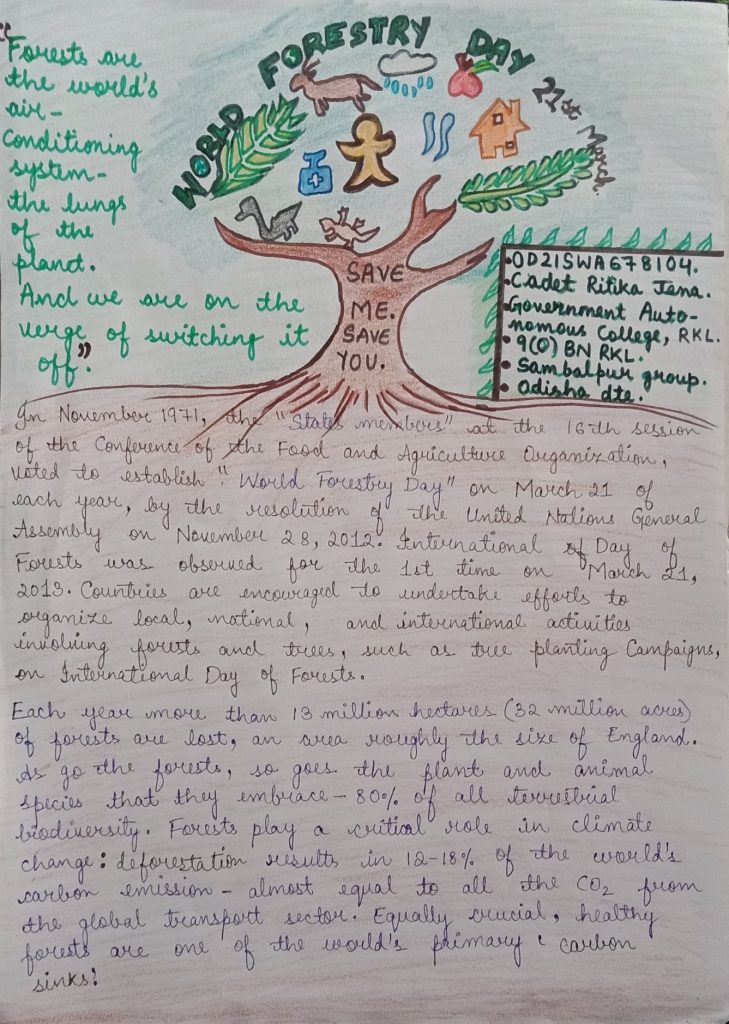 WORLD FORESTRY DAY 21st March.
"Forests are
the world's
air-
conditioning
system-
the lungs
of the
planet.
And we are on the
verge of switching it
off."
SAVE
ME.
SAVE
YOU.
• OD21SWA678104.
• Cadet Ritika Jena.
• Government Auto-
nomous College, RKL.
• 9(O) BN RKL.
• Sambalpur group.
• Odisha dte.
In November 1971, the "States members" at the 16th session
of the Conference of the Food and Agriculture Organization,
voted to establish "World Forestry Day" on March 21 of
each year, by the resolution of the United Nations General
Assembly on November 28, 2012. International of Day of
Forests was observed for the 1st time on March 21,
2013. Countries are encouraged to undertake efforts to
organize local, national, and international activities
involving forests and trees, such as tree planting Campaigns,
on International Day of Forests.
Each year more than 13 million hectares (32 million acres)
of forests are lost, an area roughly the size of England.
As go the forests, so goes the plant and animal
species that they embrace – 80% of all terrestrial
biodiversity. Forests play a critical role in climate
change: deforestation results in 12-18% of the world's
carbon emission – almost equal to all the CO₂ from
the global transport sector. Equally crucial, healthy
forests are one of the world's primary carbon
sinks!